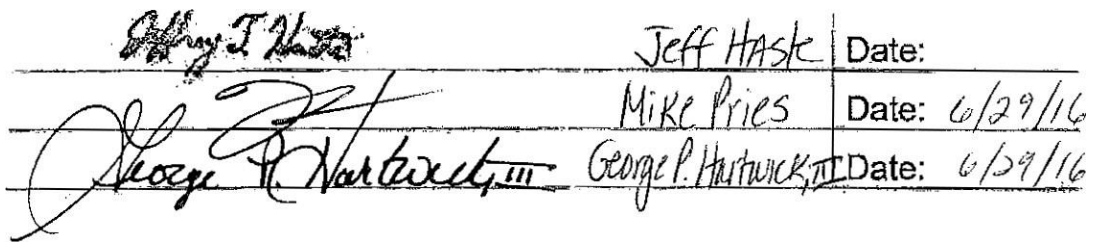 Jeffrey T. Haste Jeff HAste Date:
Mike Pries Date: 6/29/16
George P. Hartwick, III George P. Hartwick, III Date: 6/29/16